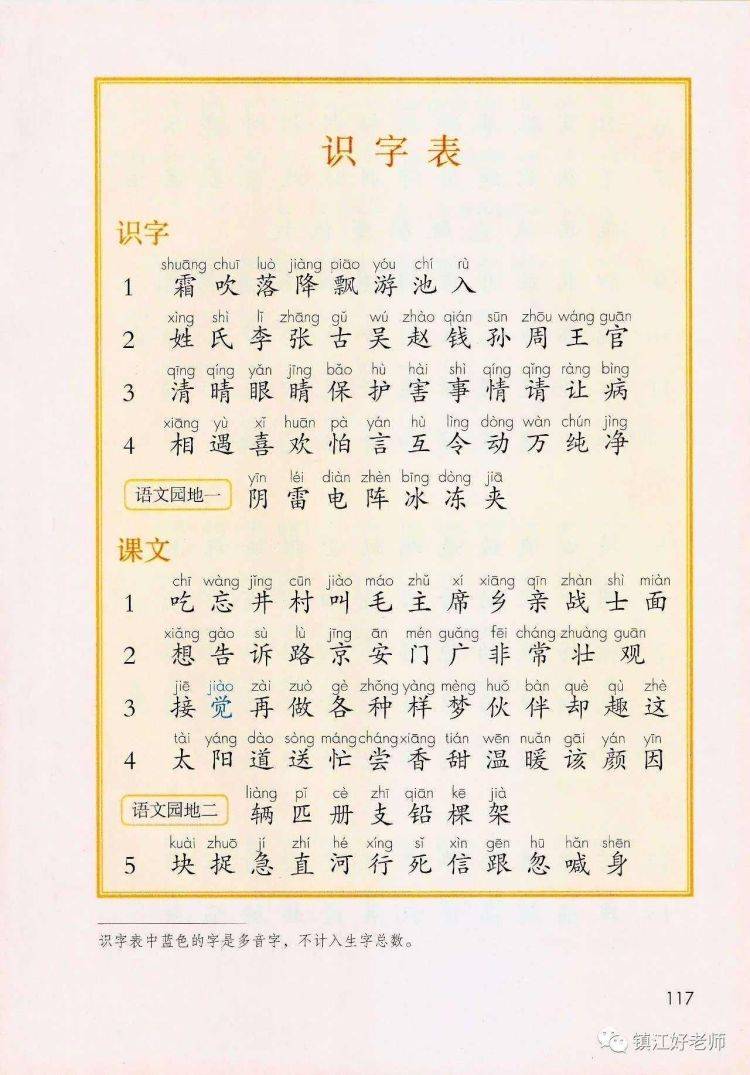 识字表
识字
shuāng chuī luò jiàng piāo yóu chí rù
1 霜 吹 落 降 飘 游 池 入
xìng shì lǐ zhāng gǔ wú zhào qián sūn zhōu wáng guān
2 姓 氏 李 张 古 吴 赵 钱 孙 周 王 官
qīng qíng yǎn jīng bǎo hù hài shì qíng qǐng ràng bìng
3 清 晴 眼 睛 保 护 害 事 情 请 让 病
xiāng yù xǐ huān pà yán hù lìng dòng wàn chún jìng
4 相 遇 喜 欢 怕 言 互 令 动 万 纯 净
yīn léi diàn zhèn bīng dòng jiā
语文园地一 阴 雷 电 阵 冰 冻 夹
课文
chī wàng jǐng cūn jiào máo zhǔ xí xiāng qīn zhàn shì miàn
1 吃 忘 井 村 叫 毛 主 席 乡 亲 战 士 面
xiǎng gào sù lù jīng ān mén guǎng fēi cháng zhuàng guān
2 想 告 诉 路 京 安 门 广 非 常 壮 观
jiē jiào zài zuò gè zhǒng yàng mèng huǒ bàn què qù zhè
3 接 觉 再 做 各 种 样 梦 伙 伴 却 趣 这
tài yáng dào sòng máng cháng xiāng tián wēn nuǎn gāi yán yīn
4 太 阳 道 送 忙 尝 香 甜 温 暖 该 颜 因
liàng pǐ cè zhī qiān kē jià
语文园地二 辆 匹 册 支 铅 棵 架
kuài zhuō jí zhí hé xíng sǐ xìn gēn hū hǎn shēn
5 块 捉 急 直 河 行 死 信 跟 忽 喊 身
识字表中蓝色的字是多音字，不计入生字总数。
117
镇江好老师